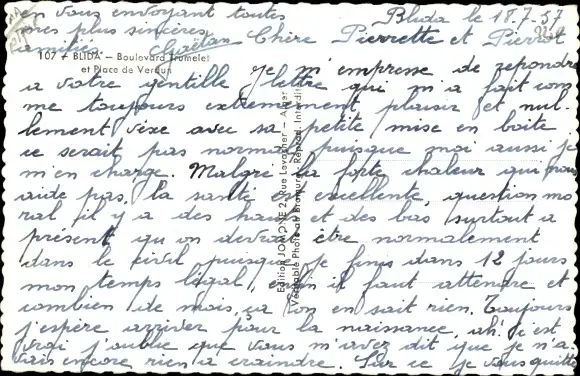 en vous envoyant toutes
mes plus sincères
amitiés. Gaëtan
Blida le 18.7.57
Chère Pierrette et Pierrot
107 - BLIDA - Boulevard Trumelet
et Place de Verdun
Je m'empresse de répondre
a votre gentille lettre qui m'a fait com
me toujours extremement plaisir et nul-
lement vexé avec sa petite mise en boite
ce serait pas normal puisque moi aussi je
m'en charge. Malgré la forte chaleur qui nous
aide pas, la santé est excellente, question mo
ral il y a des hauts et des bas surtout a
présent qu'on devrait être normalement
dans le civil puisque je finis dans 12 jours
mon temps légal, enfin il faut attendre et
combien de mois, ça l'on en sait rien. Toujours
j'espère arriver pour la naissance, ah! c'est
vrai j'oublie que vous m'avez dit que je n'a
vais encore rien a craindre. Sur ce je vous quitte
Edition JOMONE 2, Rue Lavoisier - Alger
Véritable Photo au Bromure - Reprod. Interdite